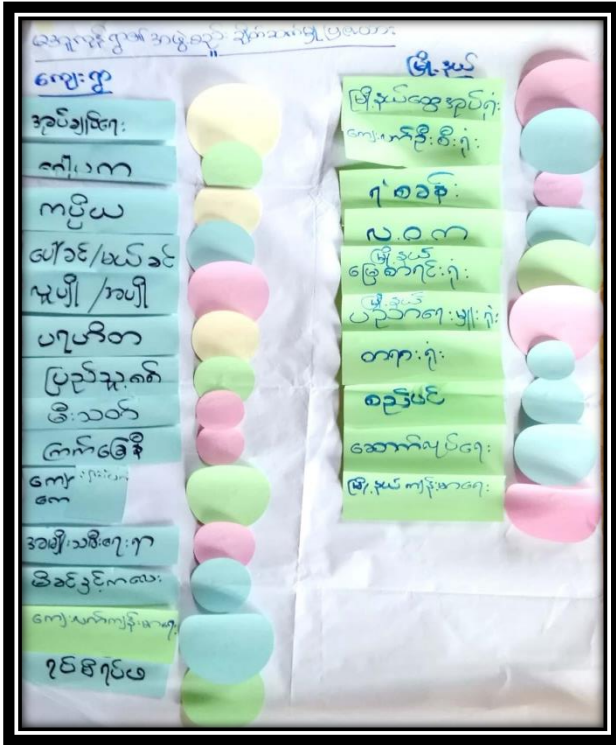 ကျေးရွာ
အုပ်ချုပ်ရေး
ဂေါပက
ကပ္ပိယ
ပေါ်ခင်/မယ်ခင်
လူပျို/အပျို
ပရဟိတ
ပြည်သူ့စစ်
မီးသတ်
ကြက်ခြေနီ
အမျိုးသမီးရေးရာ
မိခင်နှင့်ကလေး
ကျေးလက်ကျန်းမာရေး
ရပ်မိရပ်ဖ
မြို့နယ်
မြို့နယ်ထွေအုပ်ရုံး
ကျေးလက်ဦးစီးရုံး
ရဲစခန်း
လ.ဝ.က
မြို့နယ်
မြေစာရင်းရုံး
မြို့နယ်
ပညာရေးမှူးရုံး
တရားရုံး
စည်ပင်
ဆောက်လုပ်ရေး
မြို့နယ်ကျန်းမာရေး